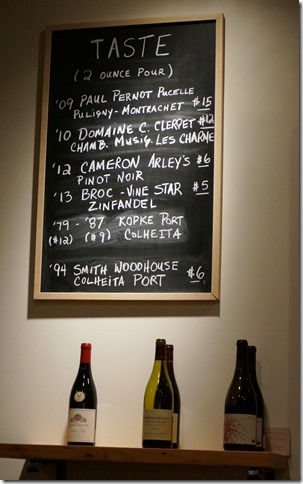 TASTE
(2 OUNCE POUR)
'09 PAUL PERNOT PUCELLE
PULIGNY-MONTRACHET $15
'10 DOMAINE C. CLERGET $12
CHAMB. MUSIG. LES CHARME
'12 CAMERON ARLEY'S $6
PINOT NOIR
'13 BROC - VINE STAR $5
ZINFANDEL
'79 - '87 KOPKE PORT
($12) ($9) COLHEITA
'94 SMITH WOODHOUSE
COLHEITA PORT $6